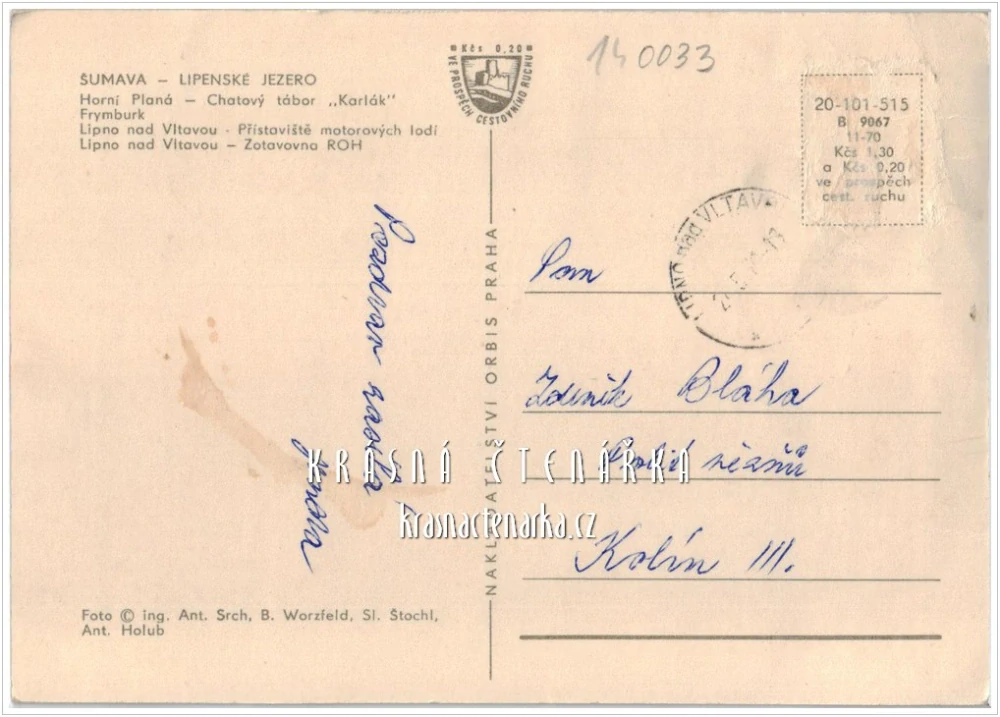 ŠUMAVA – LIPENSKÉ JEZERO
Horní Planá – Chatový tábor „Karlák"
Frymburk
Lipno nad Vltavou - Přístaviště motorových lodí
Lipno nad Vltavou – Zotavovna ROH
Kčs 0,20
VE PROSPĚCH CESTOVNÍHO RUCHU
140033
20-101-515
B 9067
11-70
Kčs 1,30
a Kčs 0,20
ve prospěch
cest. ruchu
LIPNO nad VLTAVOU
Pozdrav zasílá
Jindra
NAKLADATELSTVÍ ORBIS PRAHA
Pan
Zdeněk Bláha
Kolín III.
KRÁSNÁ ČTENÁŘKA
krasnactenarka.cz
Foto © ing. Ant. Srch, B. Worzfeld, Sl. Štochl,
Ant. Holub